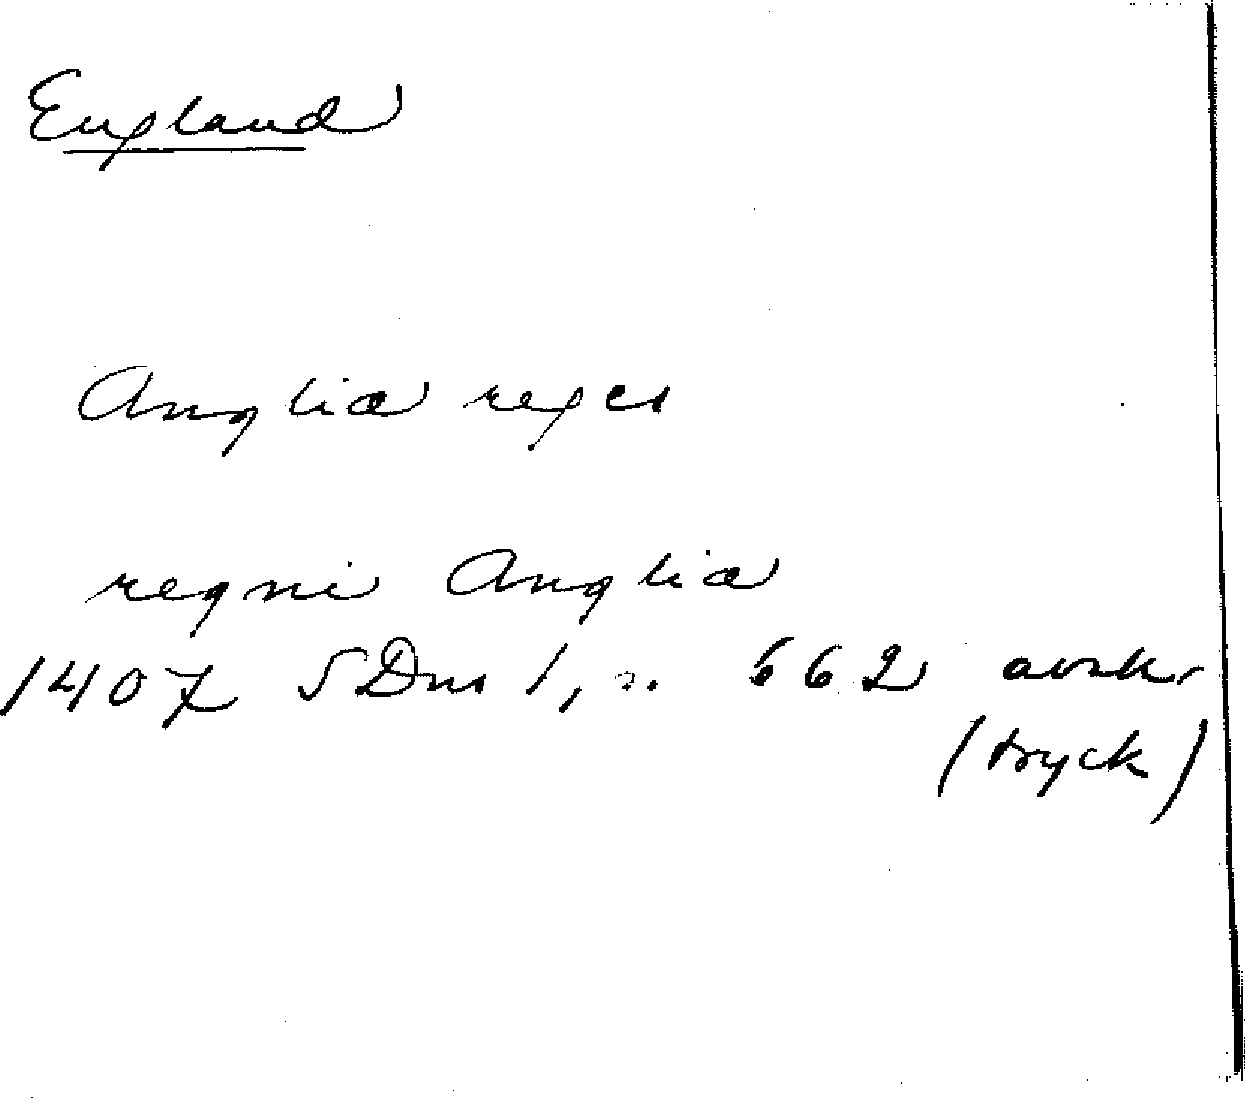 England
Angliæ reges
regni Angliæ
1407 SDns 1, n. 662 avskr
(tryck)